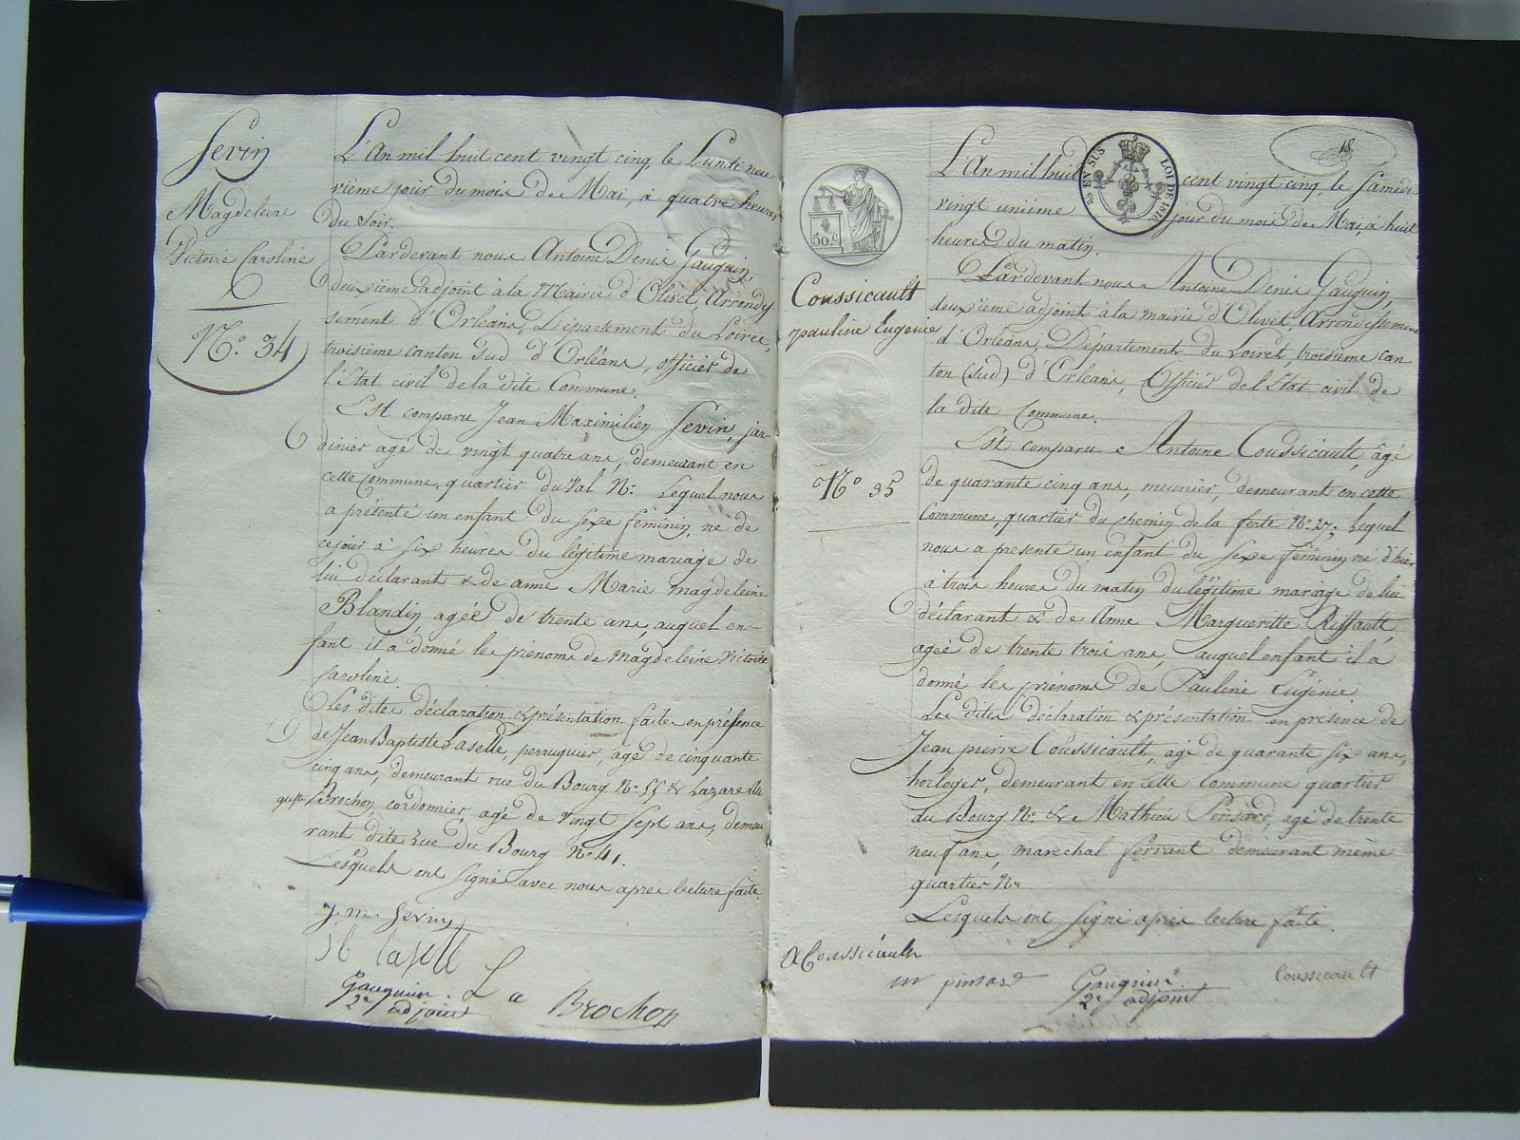 Sevin
Magdeleine
Victoire Caroline
N.o 34
L'An mil huit cent vingt cinq, le Lundi neu
vième jour du mois de Mai, à quatre heures
du Soir.
Pardevant nous Antoine Denis Gauguin,
deuxième adjoint à la Mairie d'Olivet, Arrondis
sement d'Orléans, Département du Loiret,
troisième canton Sud d'Orléans, officier de
l'Etat civil de la dite Commune.
Est comparu Jean Maximilien Sevin, jar-
dinier agé de vingt quatre ans, demeurant en
cette Commune, quartier du Val N.o Lequel nous
a présenté un enfant du sexe féminin, né de
ce jour à six heures du légitime mariage de
lui déclarant & de anne Marie Magdeleine
Blandin, agée de trente ans, auquel en-
fant il a donné les prénoms de Magdeleine Victoire
Caroline.
Les dites déclaration & présentation faites en présence
de Jean Baptiste Laselle, perruquier, agé de cinquante
cinq ans, demeurant rue du Bourg N.o 55 & Lazare
Brochon, cordonnier, agé de vingt sept ans, demeu
rant dite rue du Bourg N.o 41.
Lesquels ont signé avec nous après lecture faite.
J. m. Sevin
Laselle
Gauguin
2e adjoint
L a Brochon
18
EN SUS LOI DE 1816
50 c
Coussicault
pauline Eugenie
N.o 35
L'An mil huit cent vingt cinq le Samedi
vingt unième jour du mois de Mai à huit
heures du matin.
Pardevant nous Antoine Denis Gauguin,
deuxième adjoint à la mairie d'Olivet, Arrondissement
d'Orléans, Département du Loiret, troisième can
ton (Sud) d'Orléans, Officier de l'Etat civil de
la dite Commune.
Est comparu Antoine Coussicault, âgé
de quarante cinq ans, meunier, demeurant en cette
Commune, quartier du chemin de la ferté N.o 27, Lequel
nous a présenté un enfant du sexe féminin né d'hier
à trois heures du matin du légitime mariage de lui
déclarant & de Anne Margueritte Riffault,
agée de trente trois ans, auquel enfant il a
donné les prénoms de Pauline Eugénie.
Les dites déclaration & présentation en présence de
Jean pierre Coussicault, agé de quarante six ans,
horloger, demeurant en cette Commune quartier
du Bourg N.o & Mathieu Pinsard, agé de trente
neuf ans, marechal ferrant demeurant même
quartier N.o
Lesquels ont signé après lecture faite.
A Coussicault
m pinsard
Gauguin
2e adjoint
Cousseault